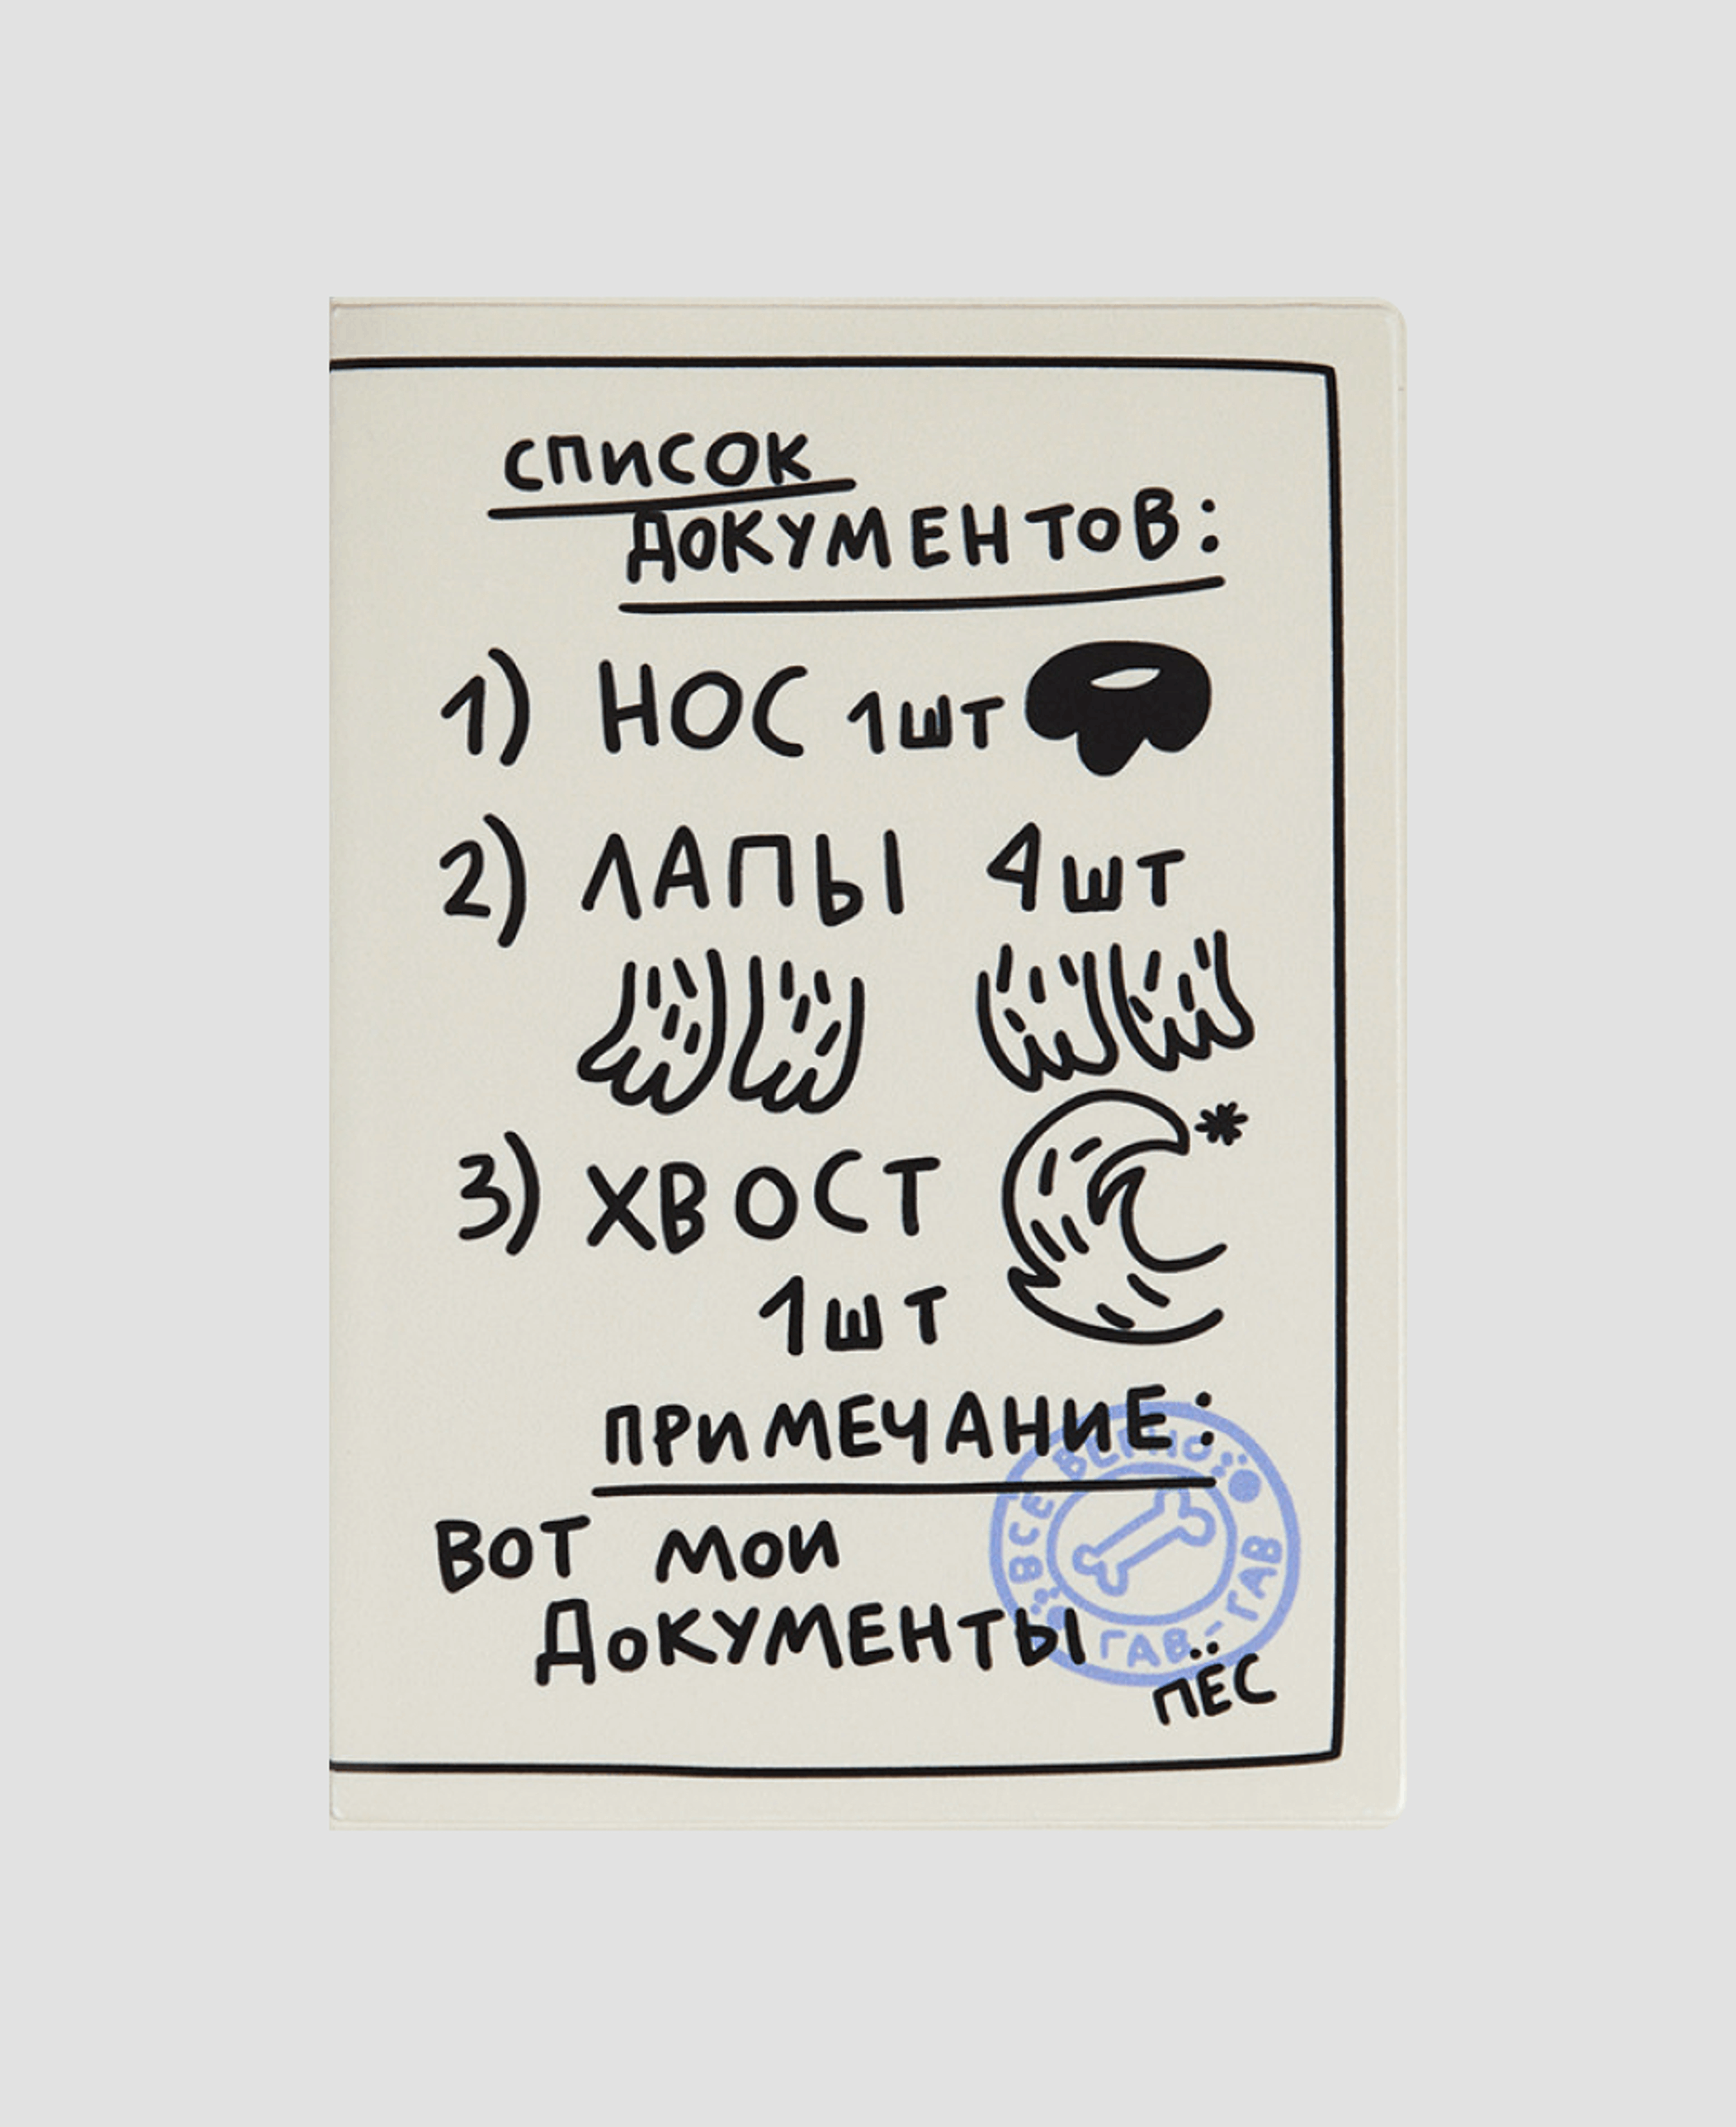 СПИСОК
ДОКУМЕНТОВ:
1) НОС 1шт
2) ЛАПЫ 4шт
*
3) ХВОСТ
1шт
ПРИМЕЧАНИЕ:
ВОТ МОИ
ДОКУМЕНТЫ
ВСЕ ВЕРНО
ГАВ-ГАВ
ПЁС